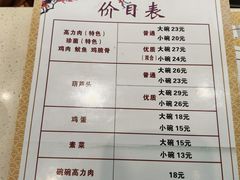 价目表
高力肉（特色） 普通 大碗 23元
珍菌（特色） 小碗 20元
鸡肉 鱿鱼 鸡脆骨 优质 大碗 27元
（混合） 小碗 24元
葫芦头 普通 大碗 26元
小碗 23元
优质 大碗 29元
小碗 26元
鸡蛋 大碗 18元
小碗 15元
素菜 大碗 15元
小碗 13元
碗碗高力肉 18元